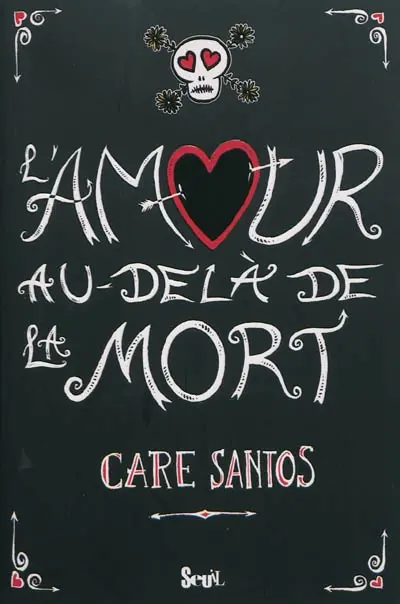 L'AMOUR
AU-DELÀ DE
LA MORT
CARE SANTOS
SEUIL